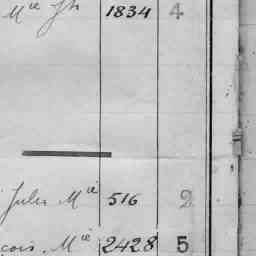 Mie Jh 1834 4
Jules Mie 516 2
çois, Mie 2428 5